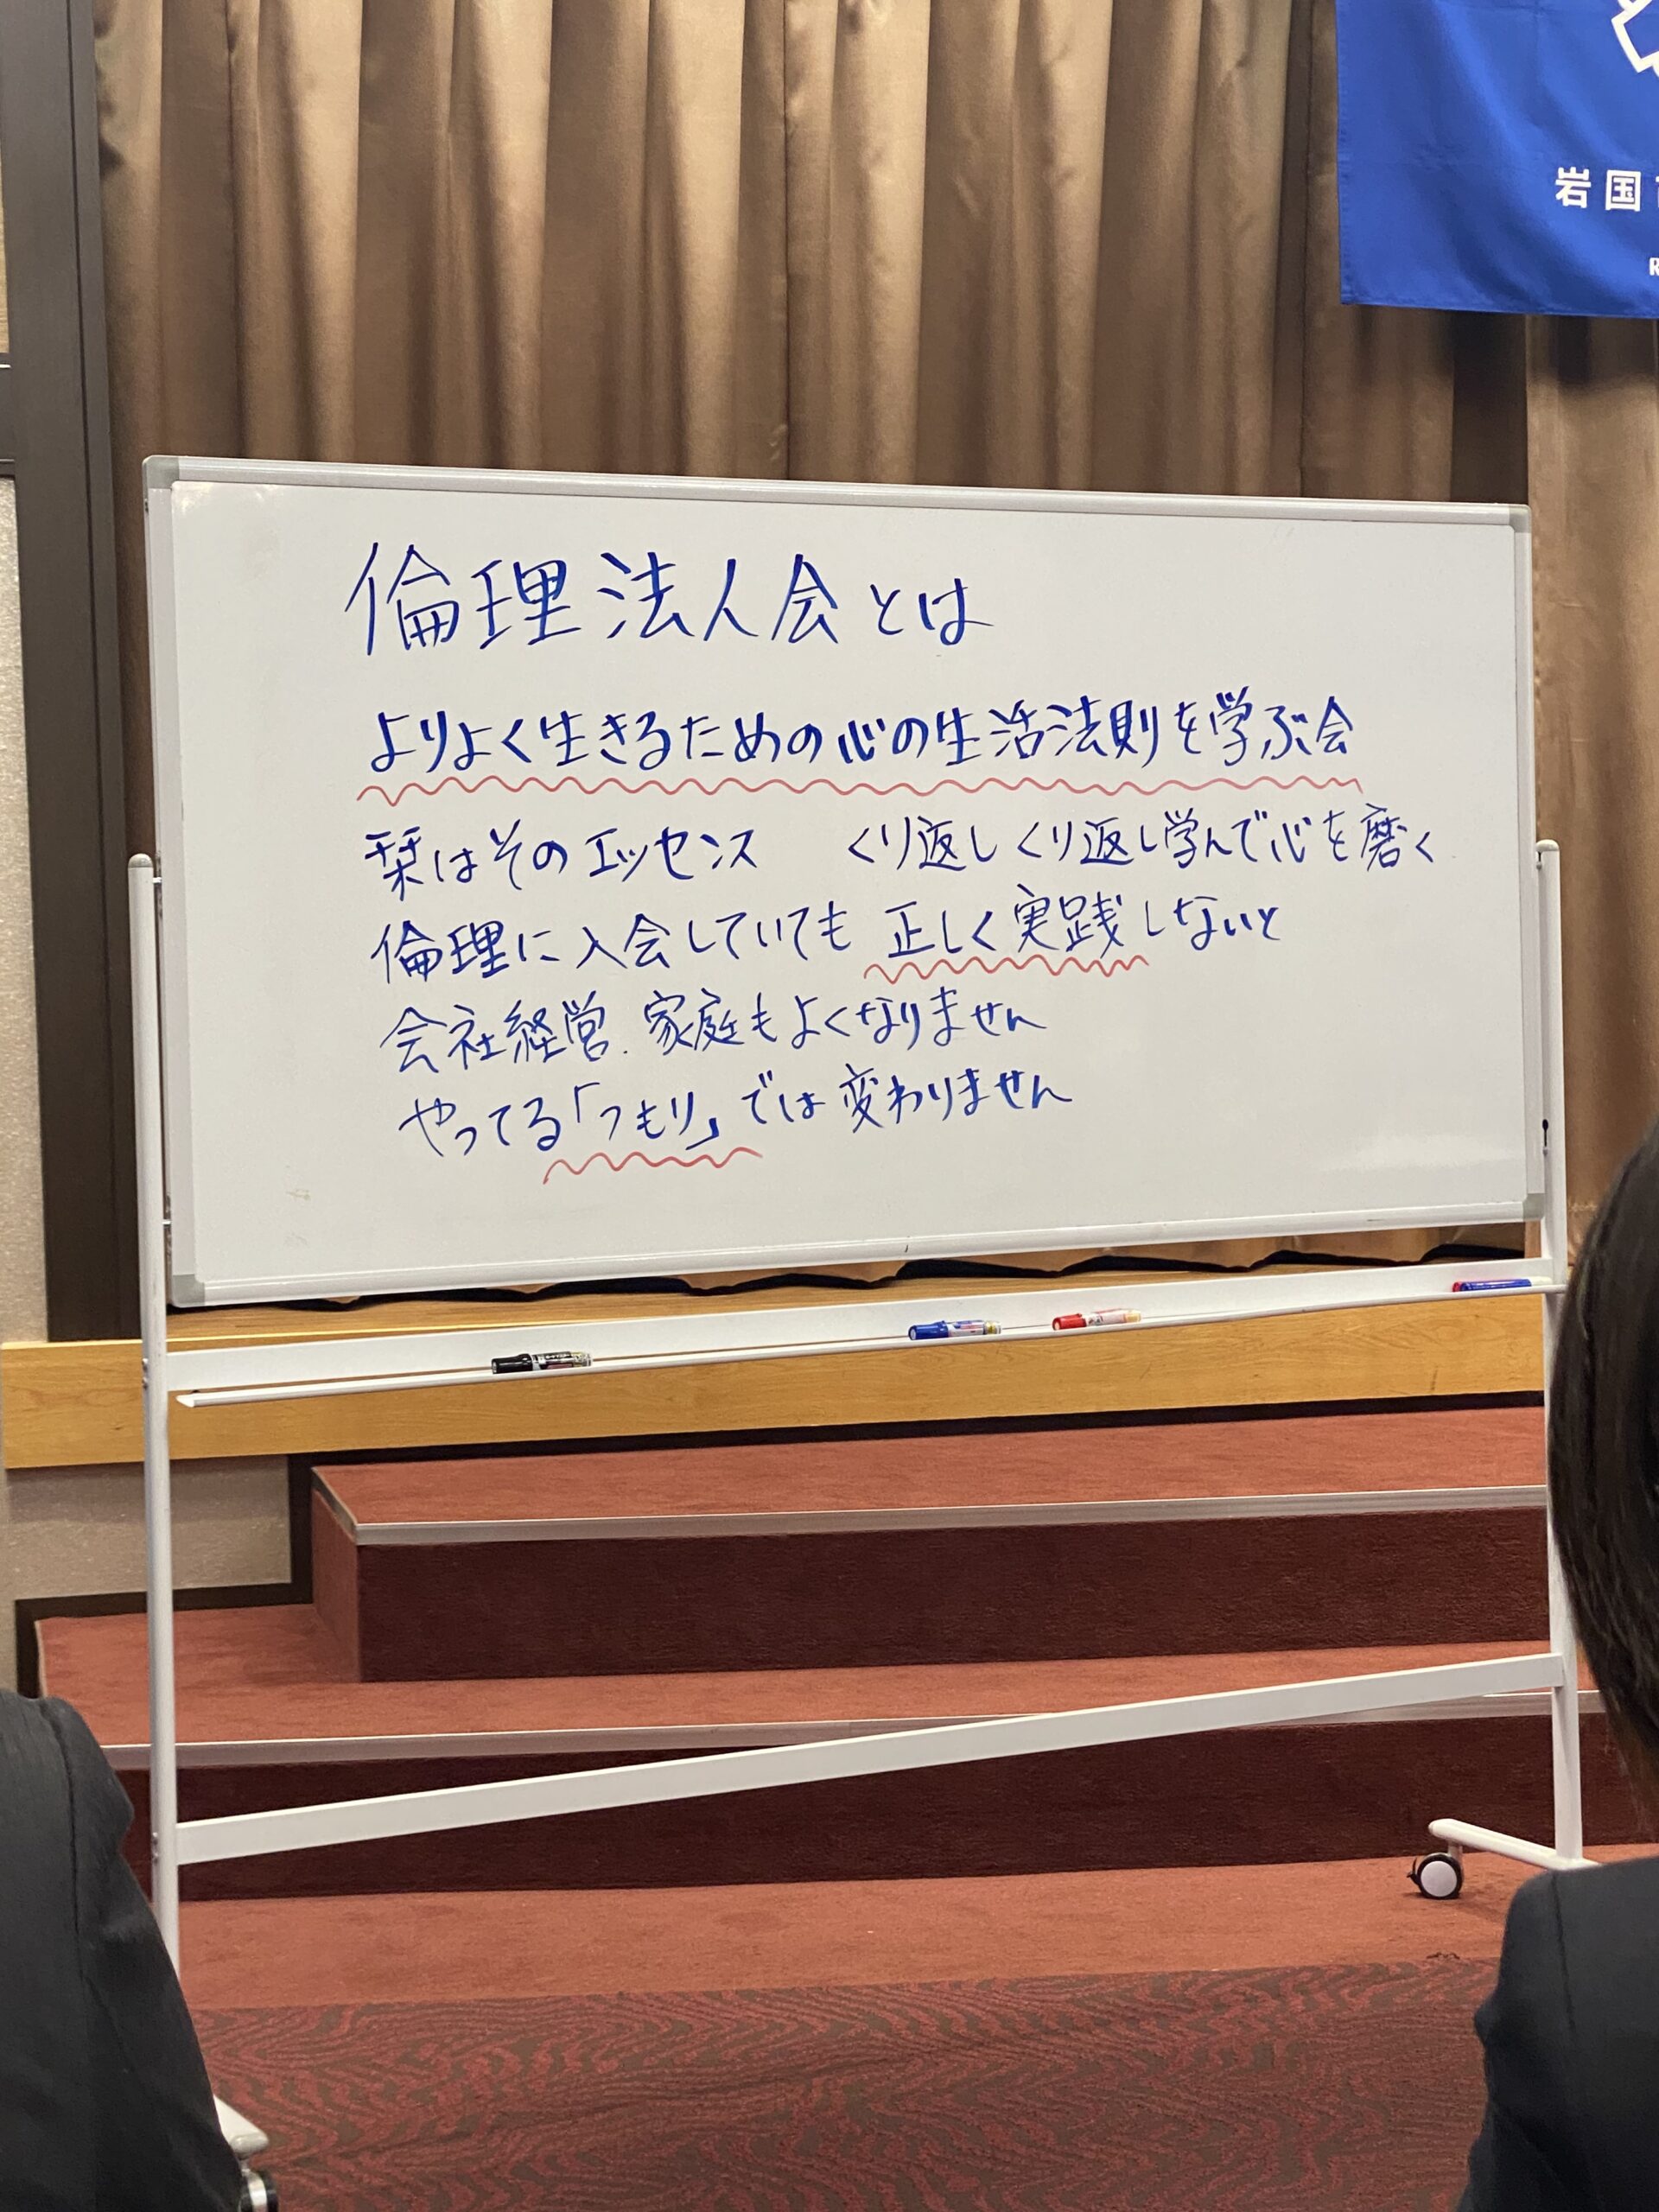 岩国
倫理法人会とは
よりよく生きるための心の生活法則を学ぶ会
栞はそのエッセンス　くり返しくり返し学んで心を磨く
倫理に入会していても正しく実践しないと
会社経営.家庭もよくなりません
やってる「つもり」では変わりません